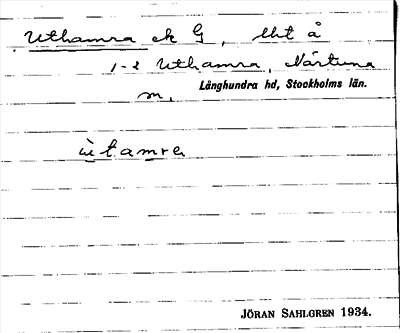 Uthamra ek G, Uht å
1-2 Uthamra, Närtuna
sn,
Långhundra hd, Stockholms län.
ùtamra
JÖRAN SAHLGREN 1934.